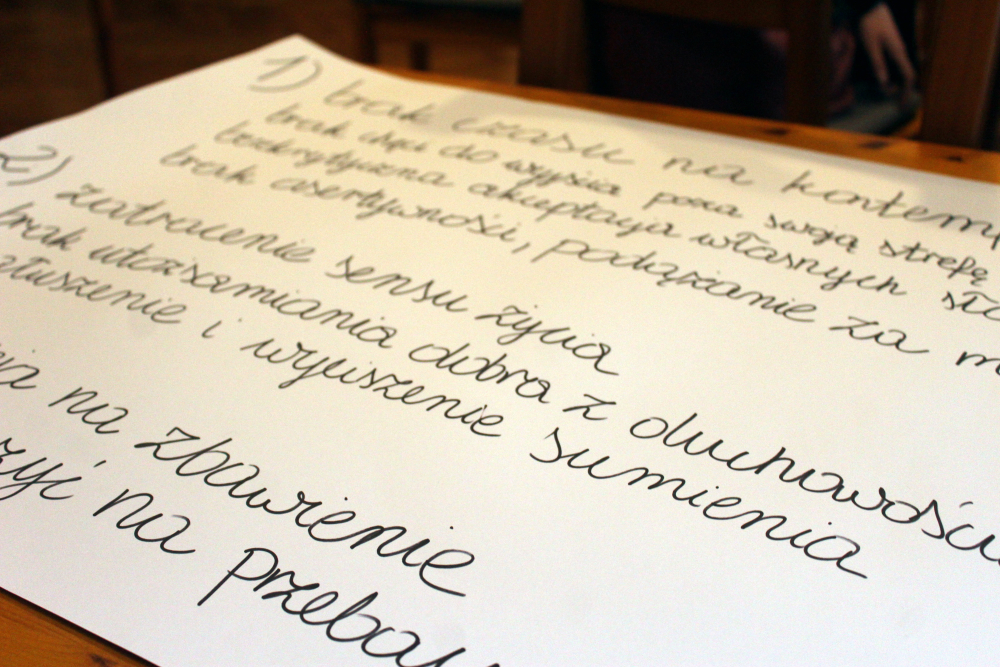 1) brak czasu na kontemp
brak chęci do wyjścia poza swoją strefę
bezkrytyczna akceptacja własnych sła
brak asertywności, podążanie za m
2) zatracenie sensu życia
brak utożsamiania dobra z duchowości
złuszenie i wyciszenie sumienia
na zbawienie
żyć na przeba